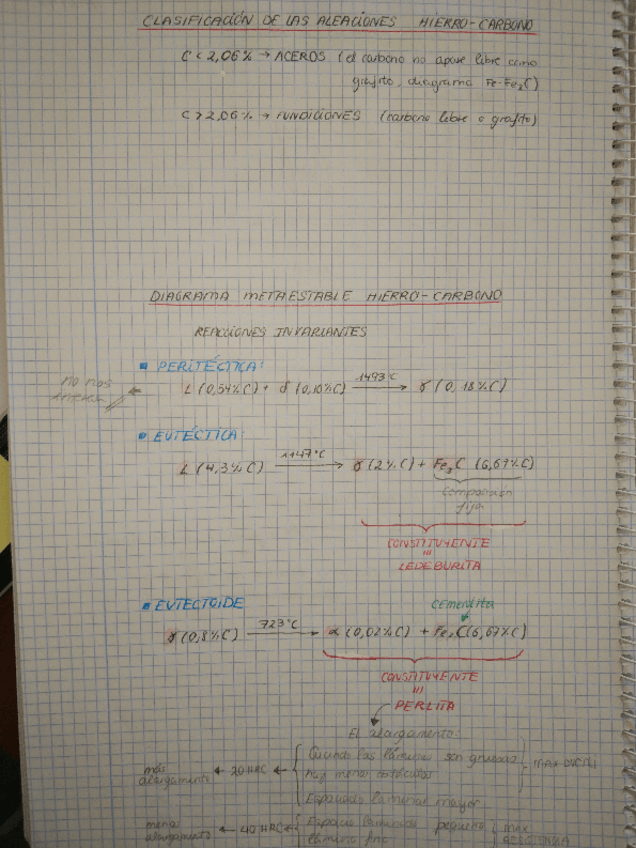 CLASIFICACIÓN DE LAS ALEACIONES HIERRO-CARBONO
C < 2,06% → ACEROS (el carbono no aparece libre como
grafito, diagrama Fe-Fe₃C)
C > 2,06% → FUNDICIONES (carbono libre o grafito)
DIAGRAMA METAESTABLE HIERRO-CARBONO
REACCIONES INVARIANTES
▪ PERITÉCTICA:
L (0,54%C) + δ (0,10%C) —1493°C→ γ (0,18%C)
no nos
▪ EUTÉCTICA:
L (4,3%C) —1147°C→ γ (2%C) + Fe₃C (6,67%C)
Composición
fija
CONSTITUYENTE
≡
LEDEBURITA
▪ EUTECTOIDE
cementita
γ (0,8%C) —723°C→ α (0,02%C) + Fe₃C (6,67%C)
CONSTITUYENTE
≡
PERLITA
El alargamiento:
Cuando las láminas son gruesas
hay menos
más alargamiento ← 20HRC ←
Espaciado laminar mayor
menos alargamiento ← 40HRC ← Espacio laminado pequeño
lámina fina
max
RESISTENCIA